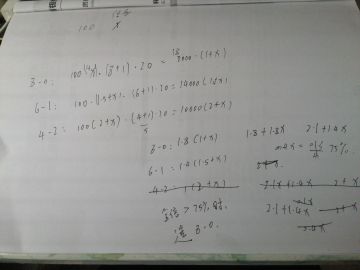 100 x
3-0: 100(1+x)·(8+1)·20 = 18000·(1+x)
6-1: 100·(1.5+x)·(6+1)·20 = 14000(1.5+x)
4-2: 100(2+x)·(4+1)·20 = 10000(2+x)
5
3-0: 1.8(1+x)
6-1: 1.4(1.5+x)
4-2: 1(2+x)
1.8+1.8x 2.1+1.4x
0.4x = 75%
2.1+1.4x 2+x
2.1+1.4x
> 75%
选 3-0.